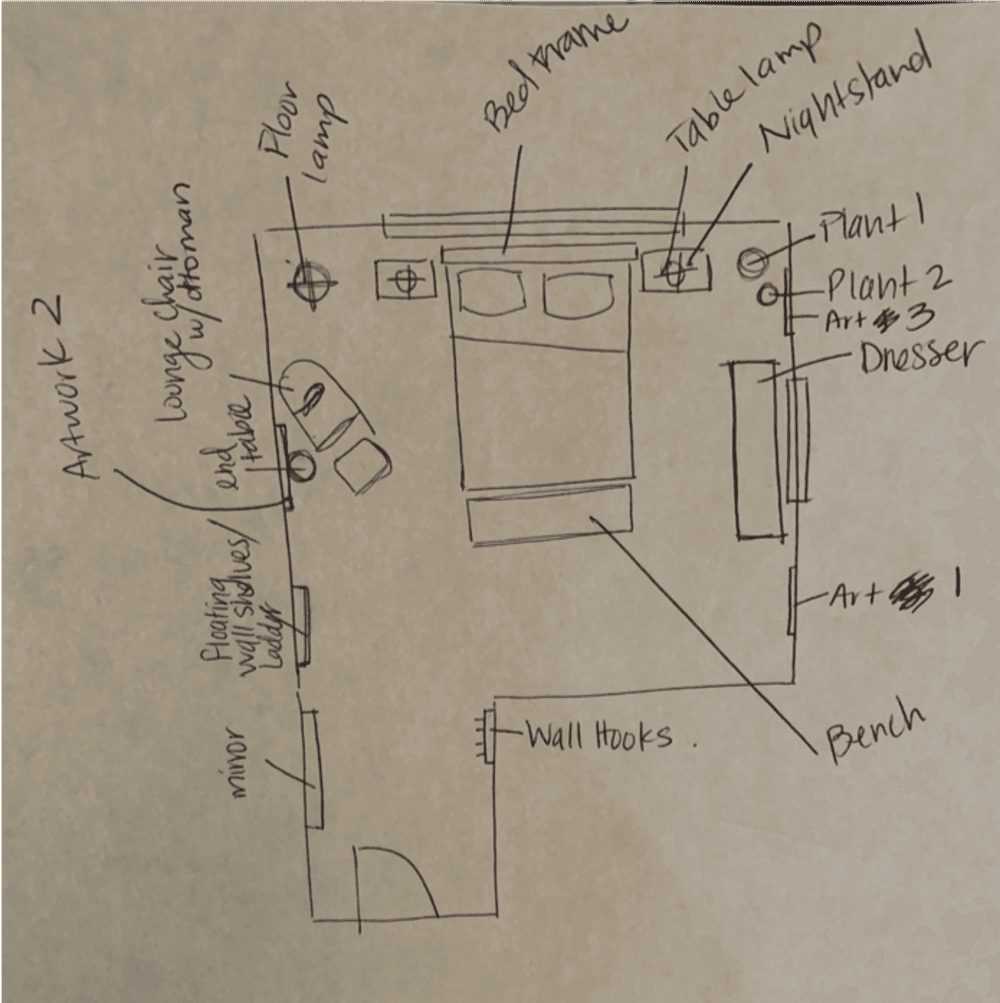 Floor
lamp
Bed frame
Table lamp
Nightstand
Plant 1
Plant 2
Art 3
Dresser
Lounge Chair
w/ ottoman
Artwork 2
end
table
Floating
wall shelves/
Ladder
Art 1
mirror
Wall Hooks .
Bench